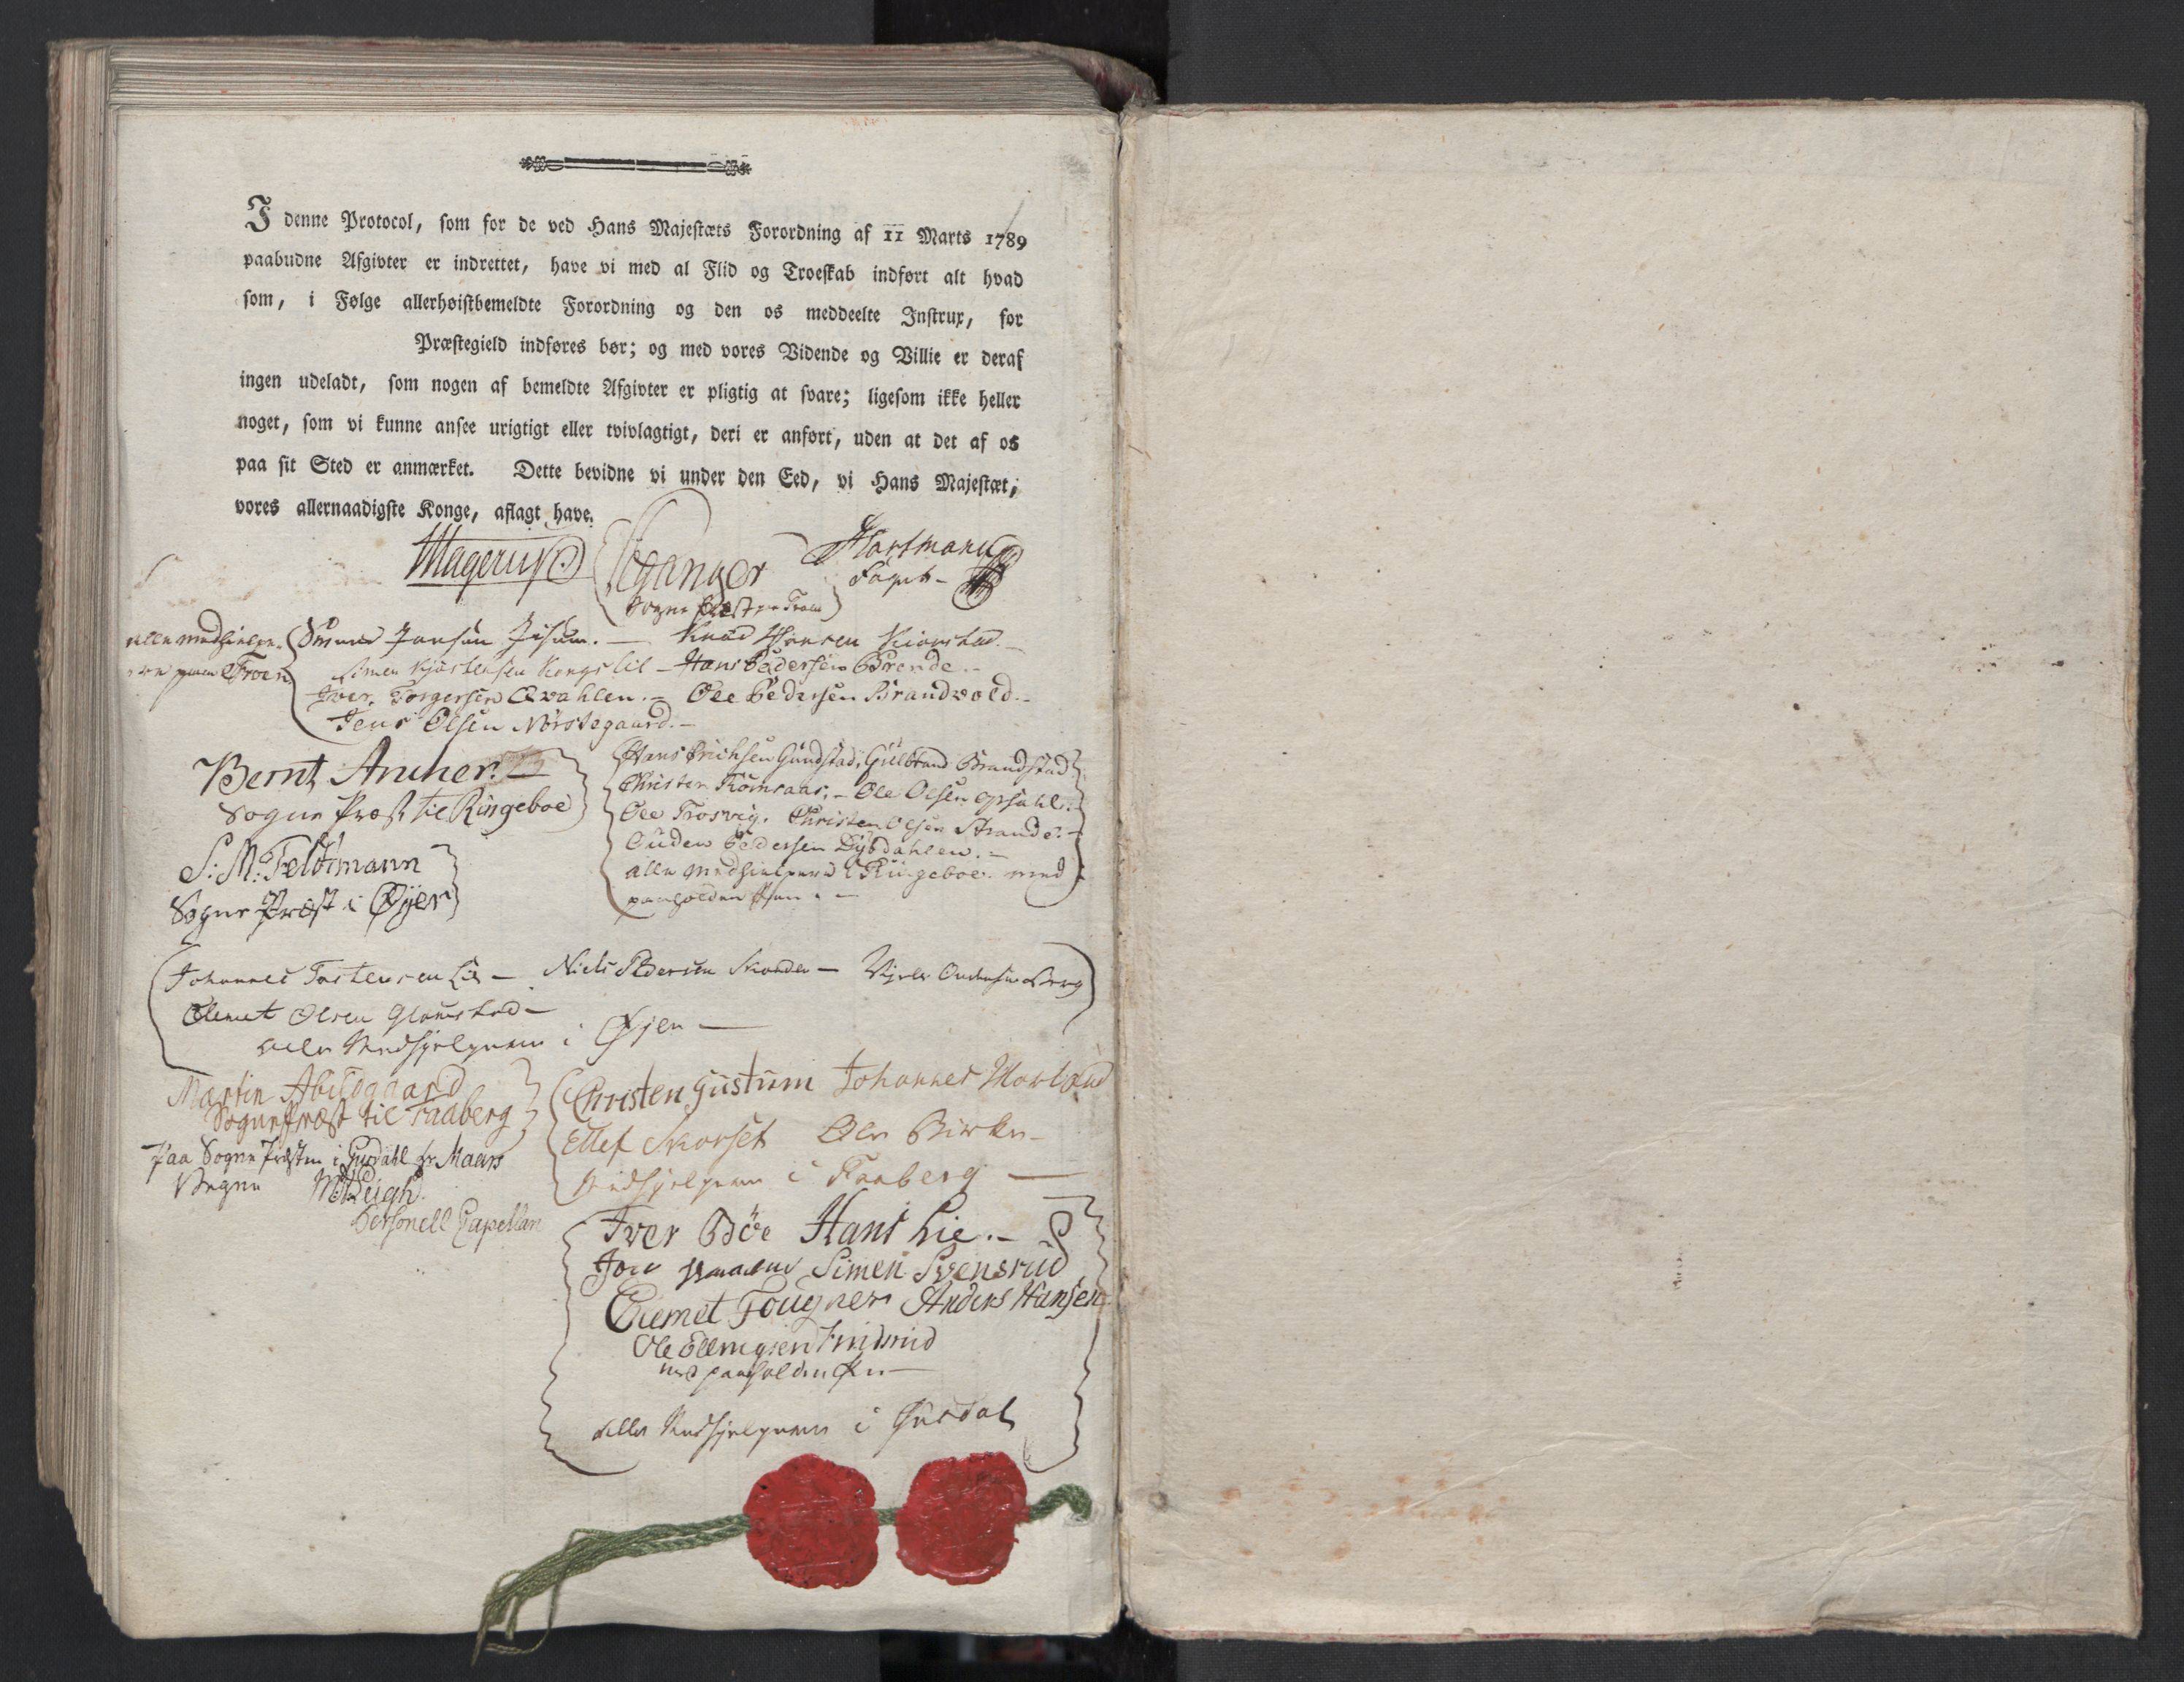 I denne Protocol, som for de ved Hans Majestæts Forordning af 11 Marts 1789
paabudne Afgivter er indrettet, have vi med al Flid og Troeskab indført alt hvad
som, i Følge allerhøistbemeldte Forordning og den os meddeelte Instrux, for
Præstegield indføres bør; og med vores Vidende og Villie er deraf
ingen udeladt, som nogen af bemeldte Afgivter er pligtig at svare; ligesom ikke heller
noget, som vi kunne ansee urigtigt eller tvivlagtigt, deri er anført, uden at det af os
paa sit Sted er anmærket. Dette bevidne vi under den Eed, vi Hans Majestæt,
vores allernaadigste Konge, aflagt have.
Magerup
Hartmann
Foged
Sogne Præst
Knud Hansen
Hans Pedersen Brende.
Iver Torgersen Qvahlen. - Ole Pedersen Brandvold.
Jens Olsen Nørstegaard.
Bernt Ancher
Sogne Præst til Ringeboe
Hans Erichsen Gundstad, Gulbrand Brandstad
Christen - Ole Olsen Opsahl.
Ole Trosvig. Christen Olsen Strande.
Ouden Pedersen Dybdahlen.
alle Medhielpere i Ringeboe med
paaholden Pen.
S: M: Feldtmann
Sogne Præst i Øyer
Johannes Tostensen Lie - Niels Pedersen - Berg
Clemet Olsen Glomstad
alle Medhjelpere i Øjer
Martin Abildgaard
Sognepræst til Faaberg
Christen Justum Johannes
Ellef Skorset Ole Birke
Medhjelpere i Faaberg
Paa Sogne Præsten i Gusdahl Hr Maars
Vegne
Personell Capellan
Iver Bøe Hans Lie.
Jon Simen Svensrud
Clemet Fougner Anders Hansen
Ole
med paaholden Pen
alle Medhjelpere i Gusdal